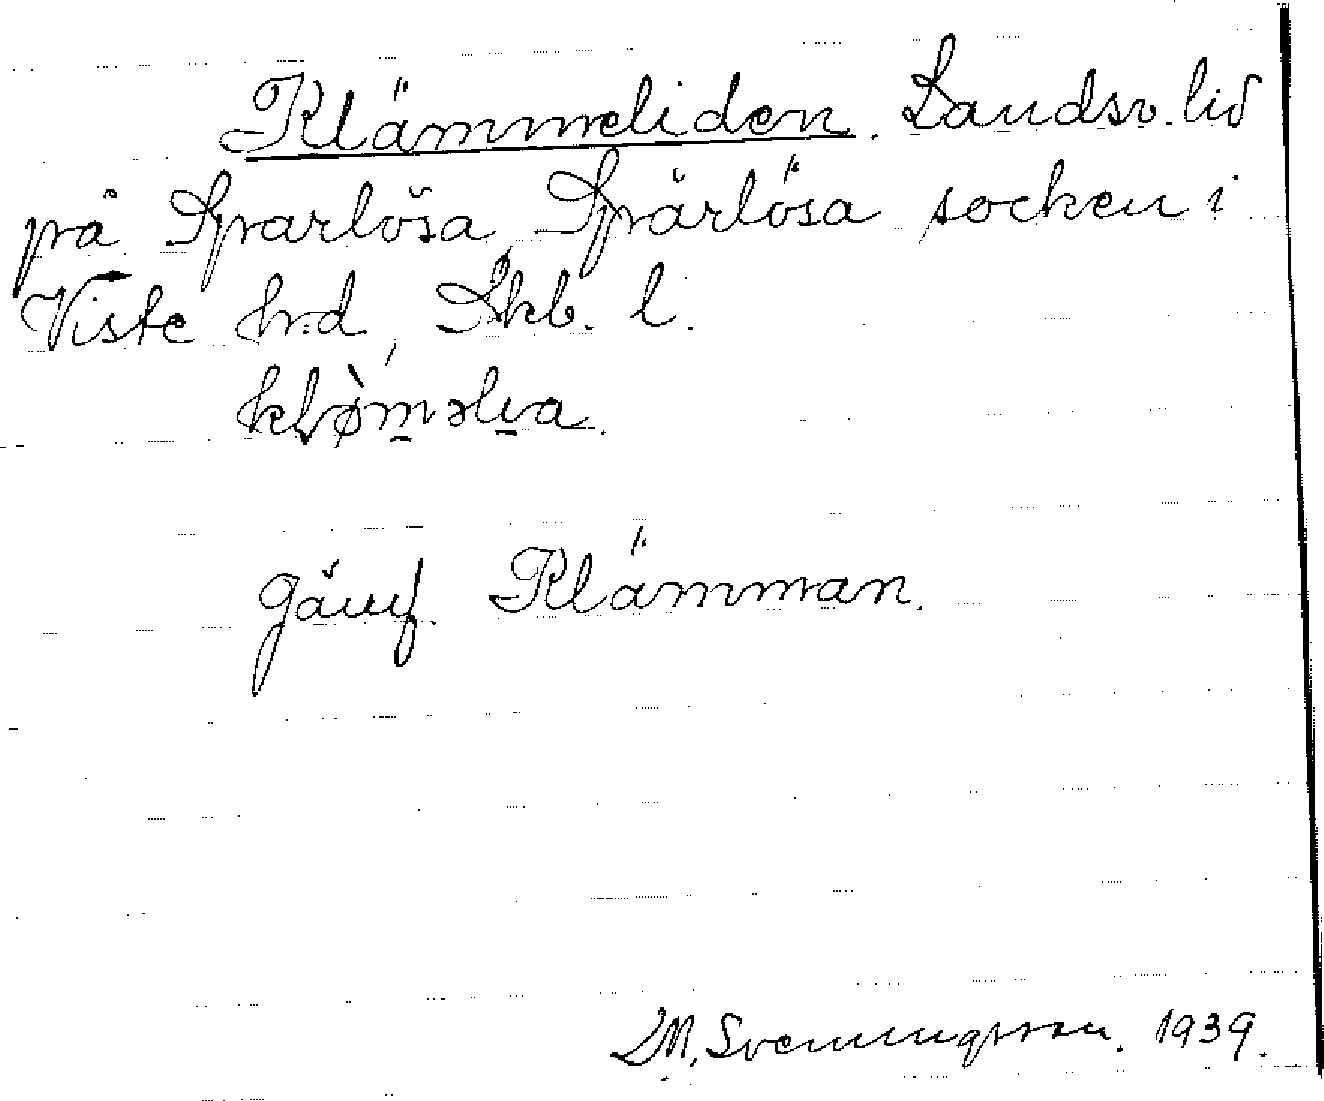 Klämmeliden. Landsv. lid
på Sparlösa, Spårlösa socken i
Viste h:d, Skb. l.
Jämf. Klämman.
M. Svenungsson. 1939.